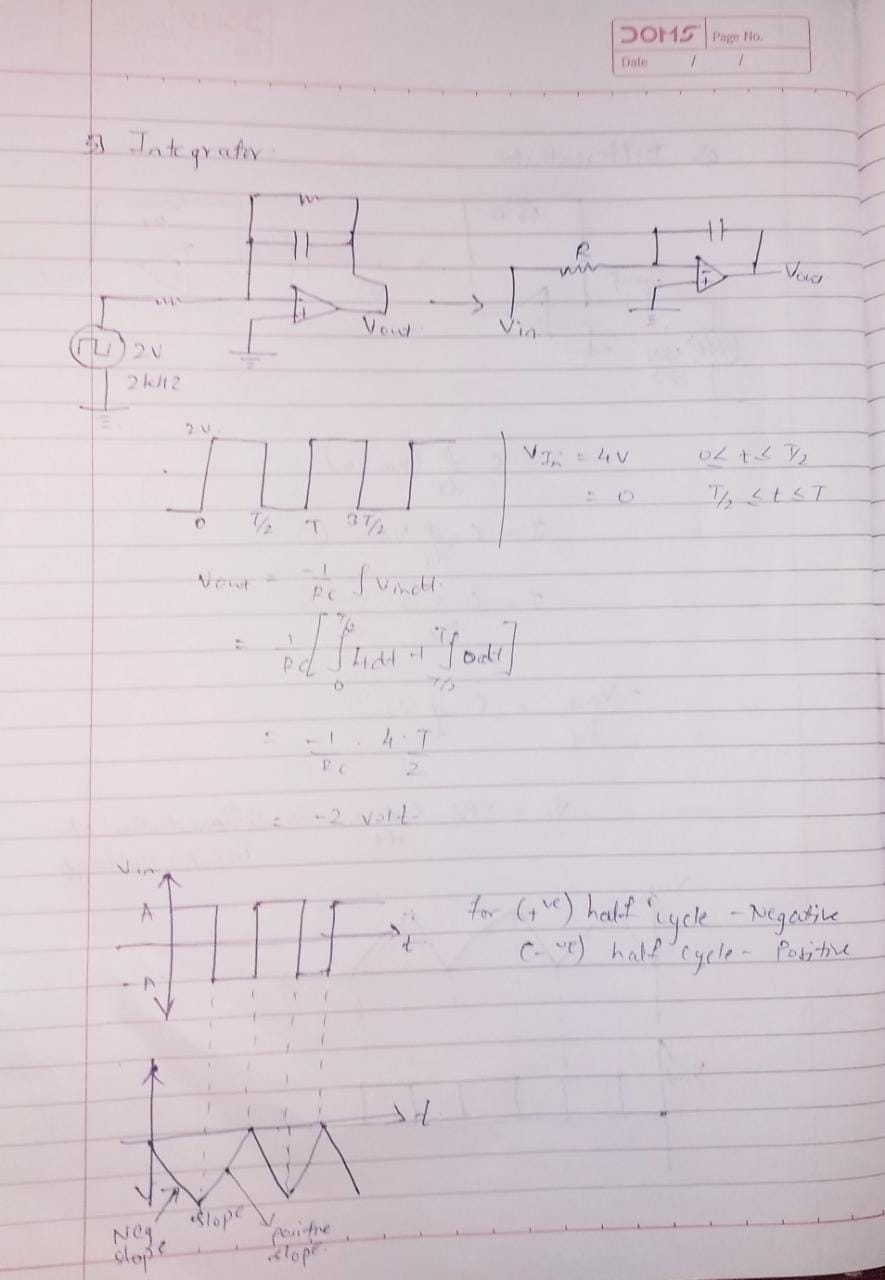 DOMS Page No.
Date / /
Integrator
R
Vout
Vin
Vout
2V
2kHz
2V
0 T/2 T 3T/2
VIn = 4V 0 ≤ t ≤ T/2
= 0 T/2 ≤ t ≤ T
Vout = -1/RC ∫ Vindt
= 1/RC [ ∫ 0 T/2 4dt + ∫ T/2 T 0dt ]
= -1/RC . 4 . T/2
= -2 volt
Vin
A
for (+ve) half cycle - Negative
t
(-ve) half cycle - Positive
-A
t
Neg slope
slope
positive slope